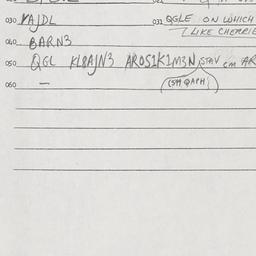 030 VAJDL
031 QGLE ON WHICH
? LIKE CHERRIE
040 BARN3
050 QGL KLBAJN3 AROS1K1M3N STAV cm AR
(SM QAPH)
060 —